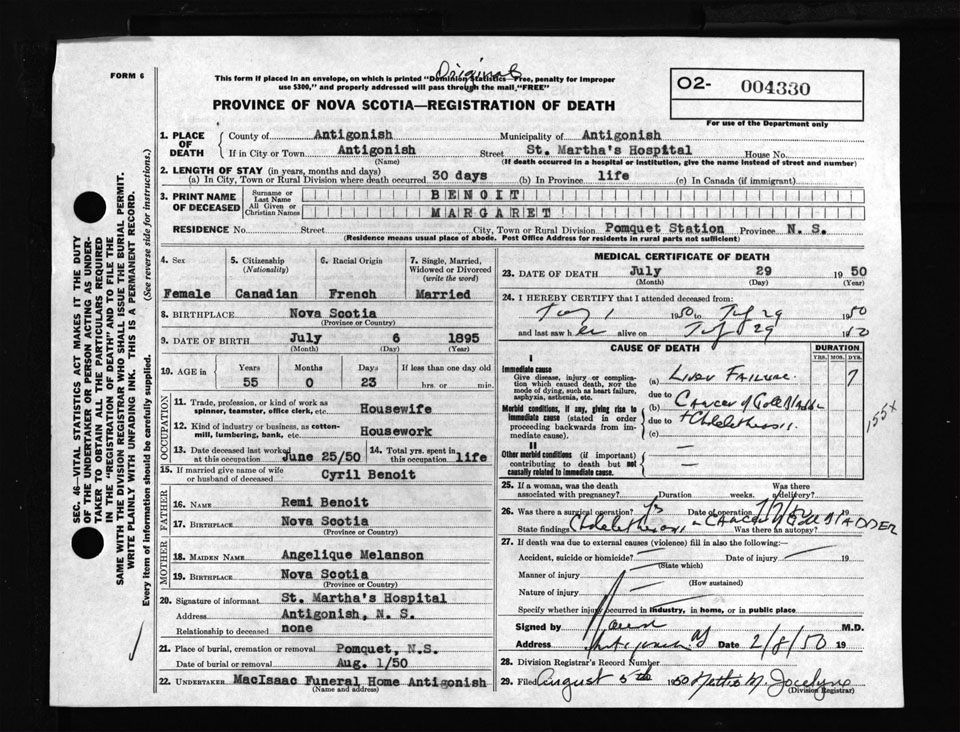 FORM 6
Original
This form if placed in an envelope, on which is printed "Dominion Statistics—Free, penalty for improper
use $300," and properly addressed will pass through the mail, "FREE"
PROVINCE OF NOVA SCOTIA—REGISTRATION OF DEATH
O2- 004330
For use of the Department only
SEC. 46—VITAL STATISTICS ACT MAKES IT THE DUTY
OF THE UNDERTAKER OR PERSON ACTING AS UNDER-
TAKER TO OBTAIN ALL THE PARTICULARS REQUIRED
IN THE "REGISTRATION OF DEATH" AND TO FILE THE
SAME WITH THE DIVISION REGISTRAR WHO SHALL ISSUE THE BURIAL PERMIT.
WRITE PLAINLY WITH UNFADING INK. THIS IS A PERMANENT RECORD.
Every item of information should be carefully supplied. (See reverse side for instructions.)
1. PLACE OF DEATH
County of Antigonish Municipality of Antigonish
If in City or Town Antigonish Street St. Martha's Hospital House No.
(Name) (If death occurred in a hospital or institution, give the name instead of street and number)
2. LENGTH OF STAY (in years, months and days)
(a) In City, Town or Rural Division where death occurred 30 days (b) In Province life (c) In Canada (if immigrant)
3. PRINT NAME OF DECEASED
Surname or Last Name BENOIT
All Given or Christian Names MARGARET
RESIDENCE No. Street City, Town or Rural Division Pomquet Station Province N. S.
(Residence means usual place of abode. Post Office Address for residents in rural parts not sufficient)
4. Sex 5. Citizenship (Nationality) 6. Racial Origin 7. Single, Married, Widowed or Divorced (write the word)
Female Canadian French Married
8. BIRTHPLACE Nova Scotia
(Province or Country)
9. DATE OF BIRTH July 6 1895
(Month) (Day) (Year)
10. AGE in Years Months Days If less than one day old
55 0 23 hrs. or min.
OCCUPATION
11. Trade, profession, or kind of work as
spinner, teamster, office clerk, etc. Housewife
12. Kind of industry or business, as cotton-
mill, lumbering, bank, etc. Housework
13. Date deceased last worked at this occupation June 25/50 14. Total yrs. spent in this occupation life
15. If married give name of wife
or husband of deceased Cyril Benoit
FATHER
16. NAME Remi Benoit
17. BIRTHPLACE Nova Scotia
(Province or Country)
MOTHER
18. MAIDEN NAME Angelique Melanson
19. BIRTHPLACE Nova Scotia
(Province or Country)
20. Signature of informant St. Martha's Hospital
Address Antigonish, N. S.
Relationship to deceased none
21. Place of burial, cremation or removal Pomquet, N.S.
Date of burial or removal Aug. 1/50
22. UNDERTAKER MacIsaac Funeral Home Antigonish
(Name and address)
MEDICAL CERTIFICATE OF DEATH
23. DATE OF DEATH July 29 1950
(Month) (Day) (Year)
24. I HEREBY CERTIFY that I attended deceased from:
1 1950 to July 29 1950
and last saw her alive on July 29 1950
CAUSE OF DEATH DURATION
YRS. MOS. DYS.
I
Immediate cause
Give disease, injury or complica-
tion which caused death, NOT the
mode of dying, such as heart failure,
asphyxia, asthenia, etc.
(a) Liver Failure. 7
due to
Morbid conditions, if any, giving rise to
immediate cause (stated in order
proceeding backwards from im-
mediate cause).
(b) Cancer of Gall Bladder
due to + Cholelithiasis.
(c) —
155x
II
Other morbid conditions (if important)
contributing to death but not
causally related to immediate cause.
25. If a woman, was the death
associated with pregnancy? Duration weeks. Was there delivery?
26. Was there a surgical operation? Yes Date of operation 19
State findings Cholelithiasis CANCER of Gall BLADDER Was there an autopsy?
27. If death was due to external causes (violence) fill in also the following:—
Accident, suicide or homicide? Date of injury 19
(State which)
Manner of injury
(How sustained)
Nature of injury
Specify whether injury occurred in industry, in home, or in public place
Signed by M.D.
Address Antigonish NS Date 2/8/50 19
28. Division Registrar's Record Number
29. Filed August 5th 1950 M. Jocelyne
(Division Registrar)